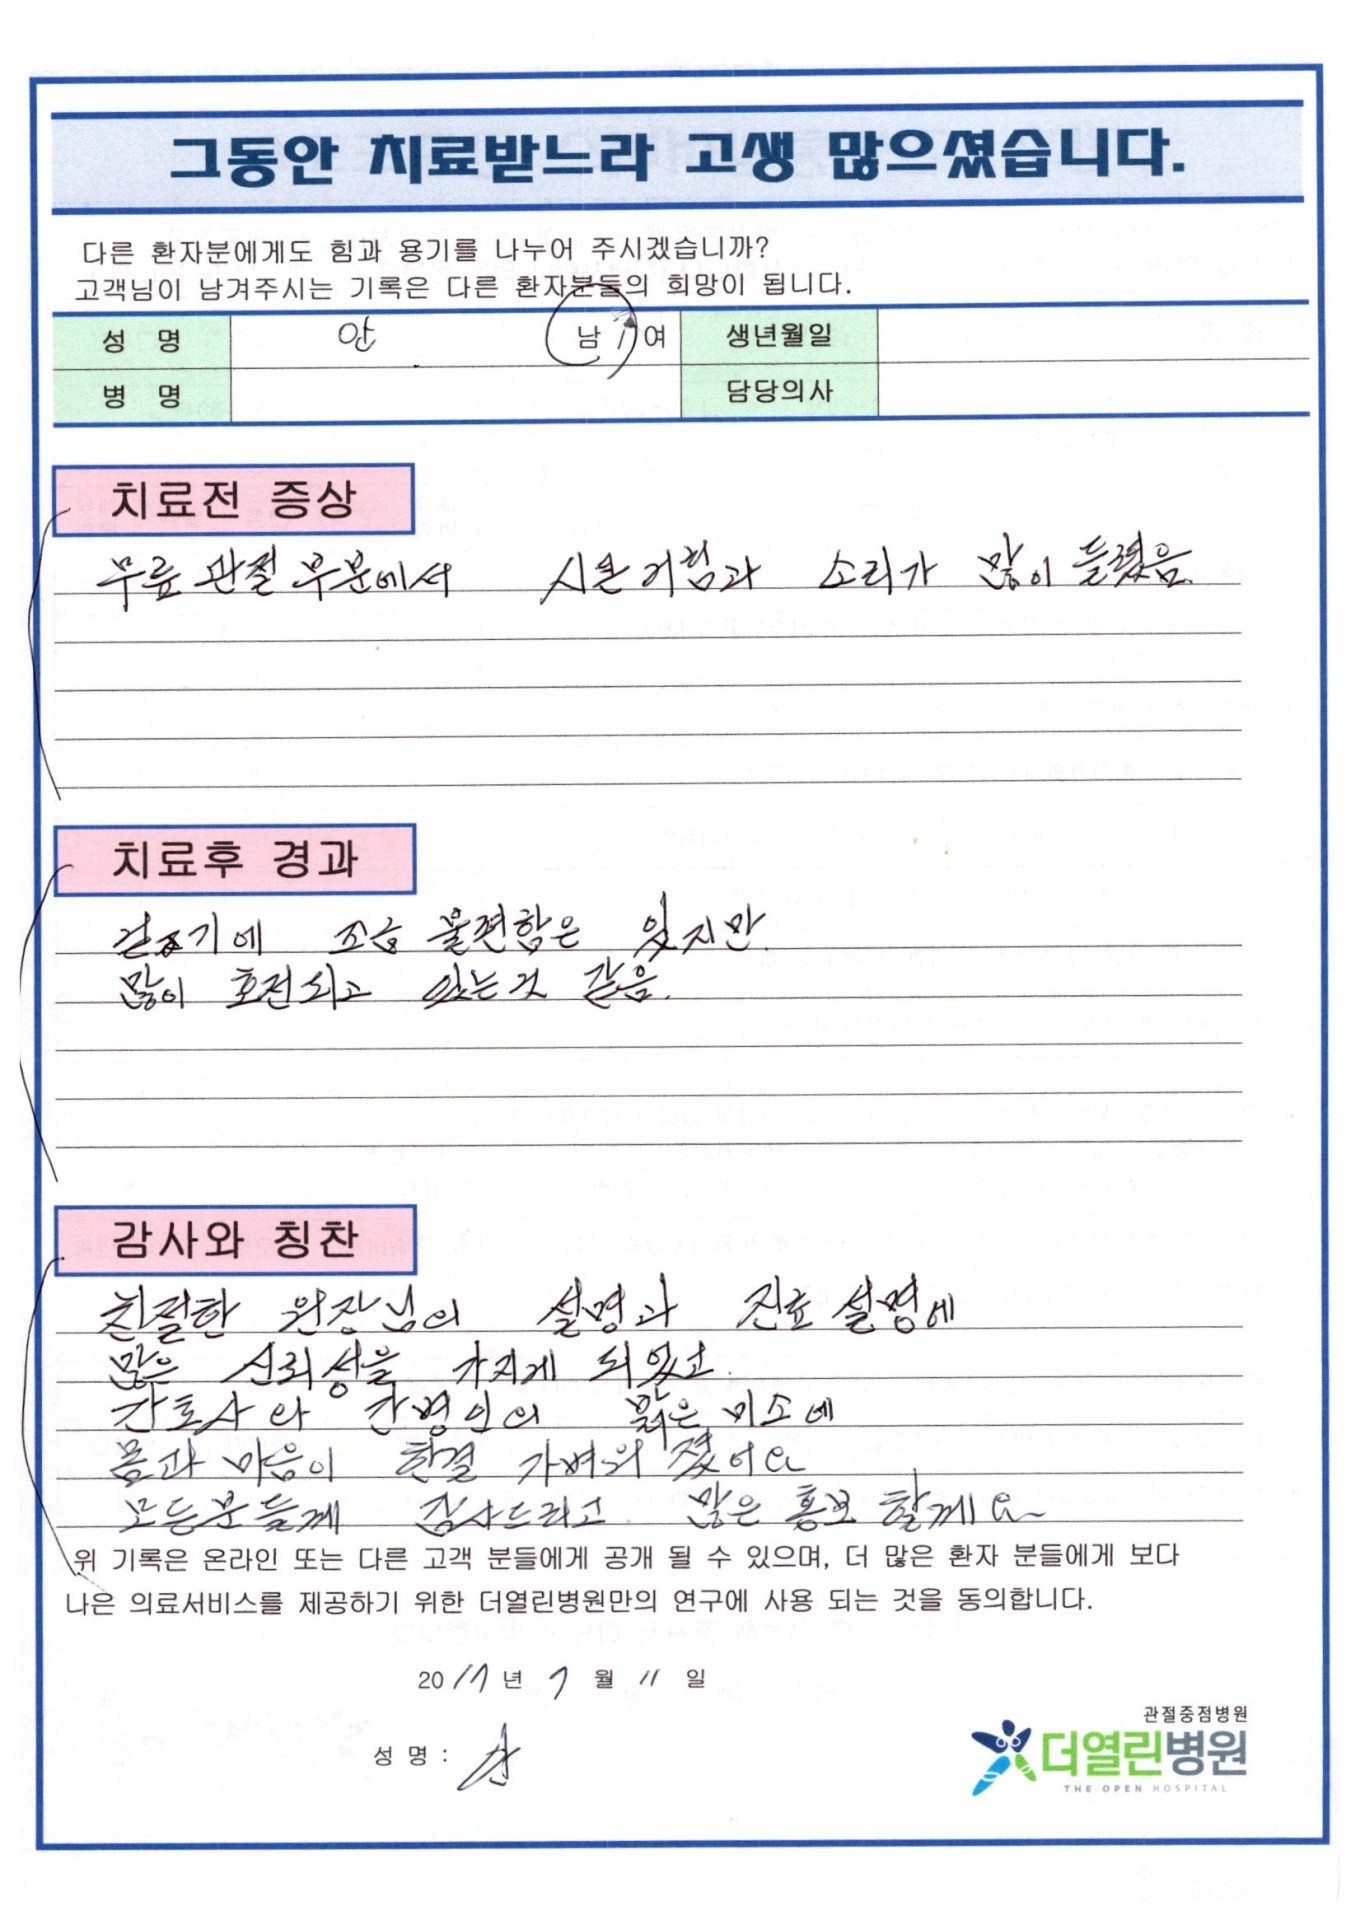 그동안 치료받느라 고생 많으셨습니다.
다른 환자분에게도 힘과 용기를 나누어 주시겠습니까?
고객님이 남겨주시는 기록은 다른 환자분들의 희망이 됩니다.
성 명 안 남 / 여 생년월일
병 명 담당의사
치료전 증상
무릎 관절 부분에서 시큰거림과 소리가 많이 들렸음.
치료후 경과
걷기에 조금 불편함은 있지만
많이 호전되고 있는것 같음.
감사와 칭찬
친절한 원장님의 설명과 진료 설명에
많은 신뢰성을 가지게 되었고
간호사와 간병인의 맑은 미소에
몸과 마음이 한결 가벼워 졌어요
모든분들께 감사드리고 많은 홍보 할께요~
위 기록은 온라인 또는 다른 고객 분들에게 공개 될 수 있으며, 더 많은 환자 분들에게 보다
나은 의료서비스를 제공하기 위한 더열린병원만의 연구에 사용 되는 것을 동의합니다.
2017년 7월 11일
성 명 : 안
관절중점병원
더열린병원
THE OPEN HOSPITAL